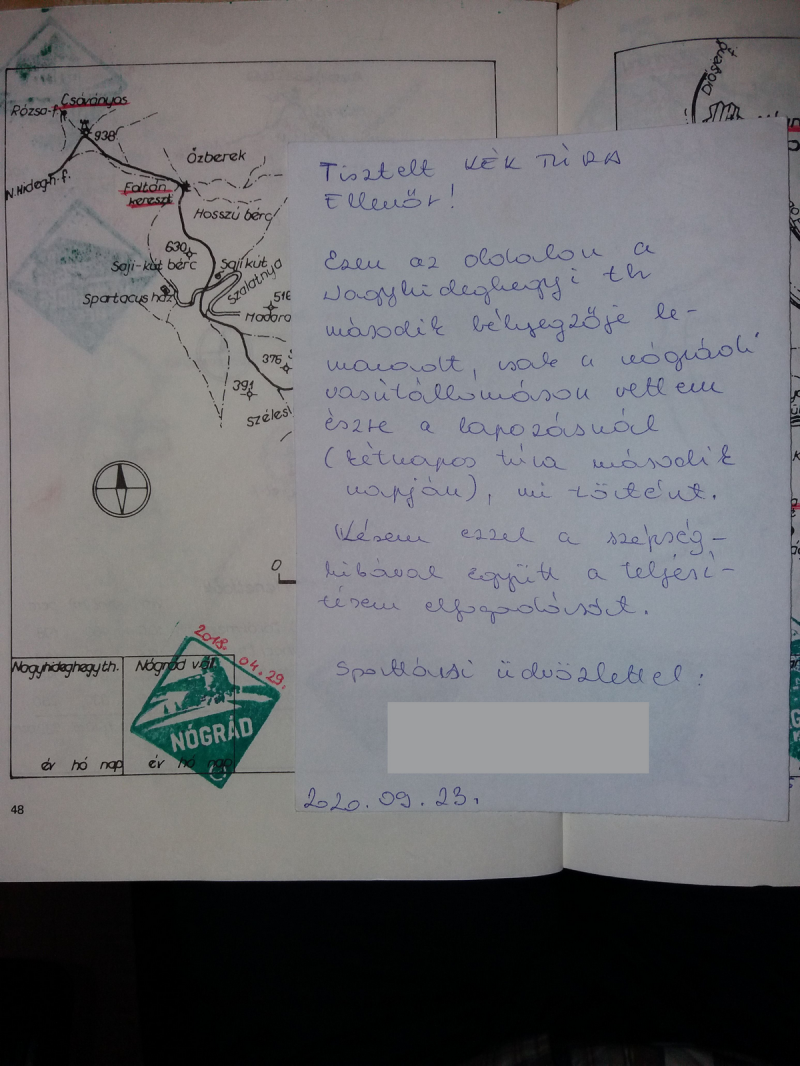 Csóványos
Rózsa-f.
938
Őzberek
N.Hidegh.f.
Foltán
kereszt
Hosszú bérc
630
Saji-kút bérc
Sajikút
Szalatnya
Spartacus ház
516
375
391
0
Nagyhideghegy th.
Nógrád v.áll.
2018. 04. 29.
NÓGRÁD
év hó nap
év hó nap
48
Tisztelt KÉK TÚRA
Ellenőr!
Ezen az oldalon a
Nagyhideghegyi th
második bélyegzője le-
maradt, csak a nógrádi
vasútállomáson vettem
észre a lapozásnál
(kétnapos túra második
napján), mi történt.
Kérem ezzel a szépség-
hibával együtt a teljesí-
tésem elfogadását.
Sporttársi üdvözlettel:
2020. 09. 23.